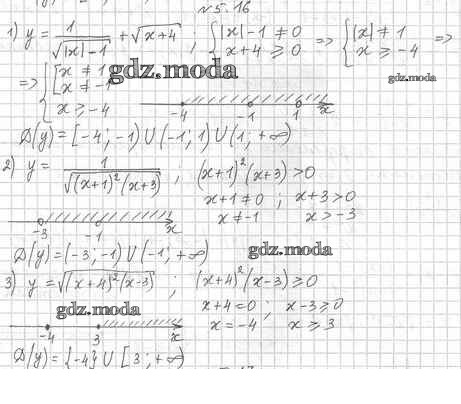 №5.16
1) y = 1/√(|x|-1) + √(x+4) ; { |x|-1 ≠ 0 x+4 ≥ 0 => { |x| ≠ 1 x ≥ -4 =>
=> { [ x ≠ 1 x ≠ -1 x ≥ -4
gdz.moda
gdz.moda
-4 -1 1 x
D(y) = [-4; -1) U (-1; 1) U (1; +∞)
2) y = 1/√((x+1)²(x+3)) ; (x+1)²(x+3) > 0
x+1 ≠ 0 ; x+3 > 0
x ≠ -1 x > -3
-3 -1 x
D(y) = (-3; -1) U (-1; +∞)
gdz.moda
3) y = √((x+4)²(x-3)) ; (x+4)²(x-3) ≥ 0
gdz.moda
x+4 = 0 ; x-3 ≥ 0
x = -4 x ≥ 3
-4 3 x
D(y) = {-4} U [3; +∞)